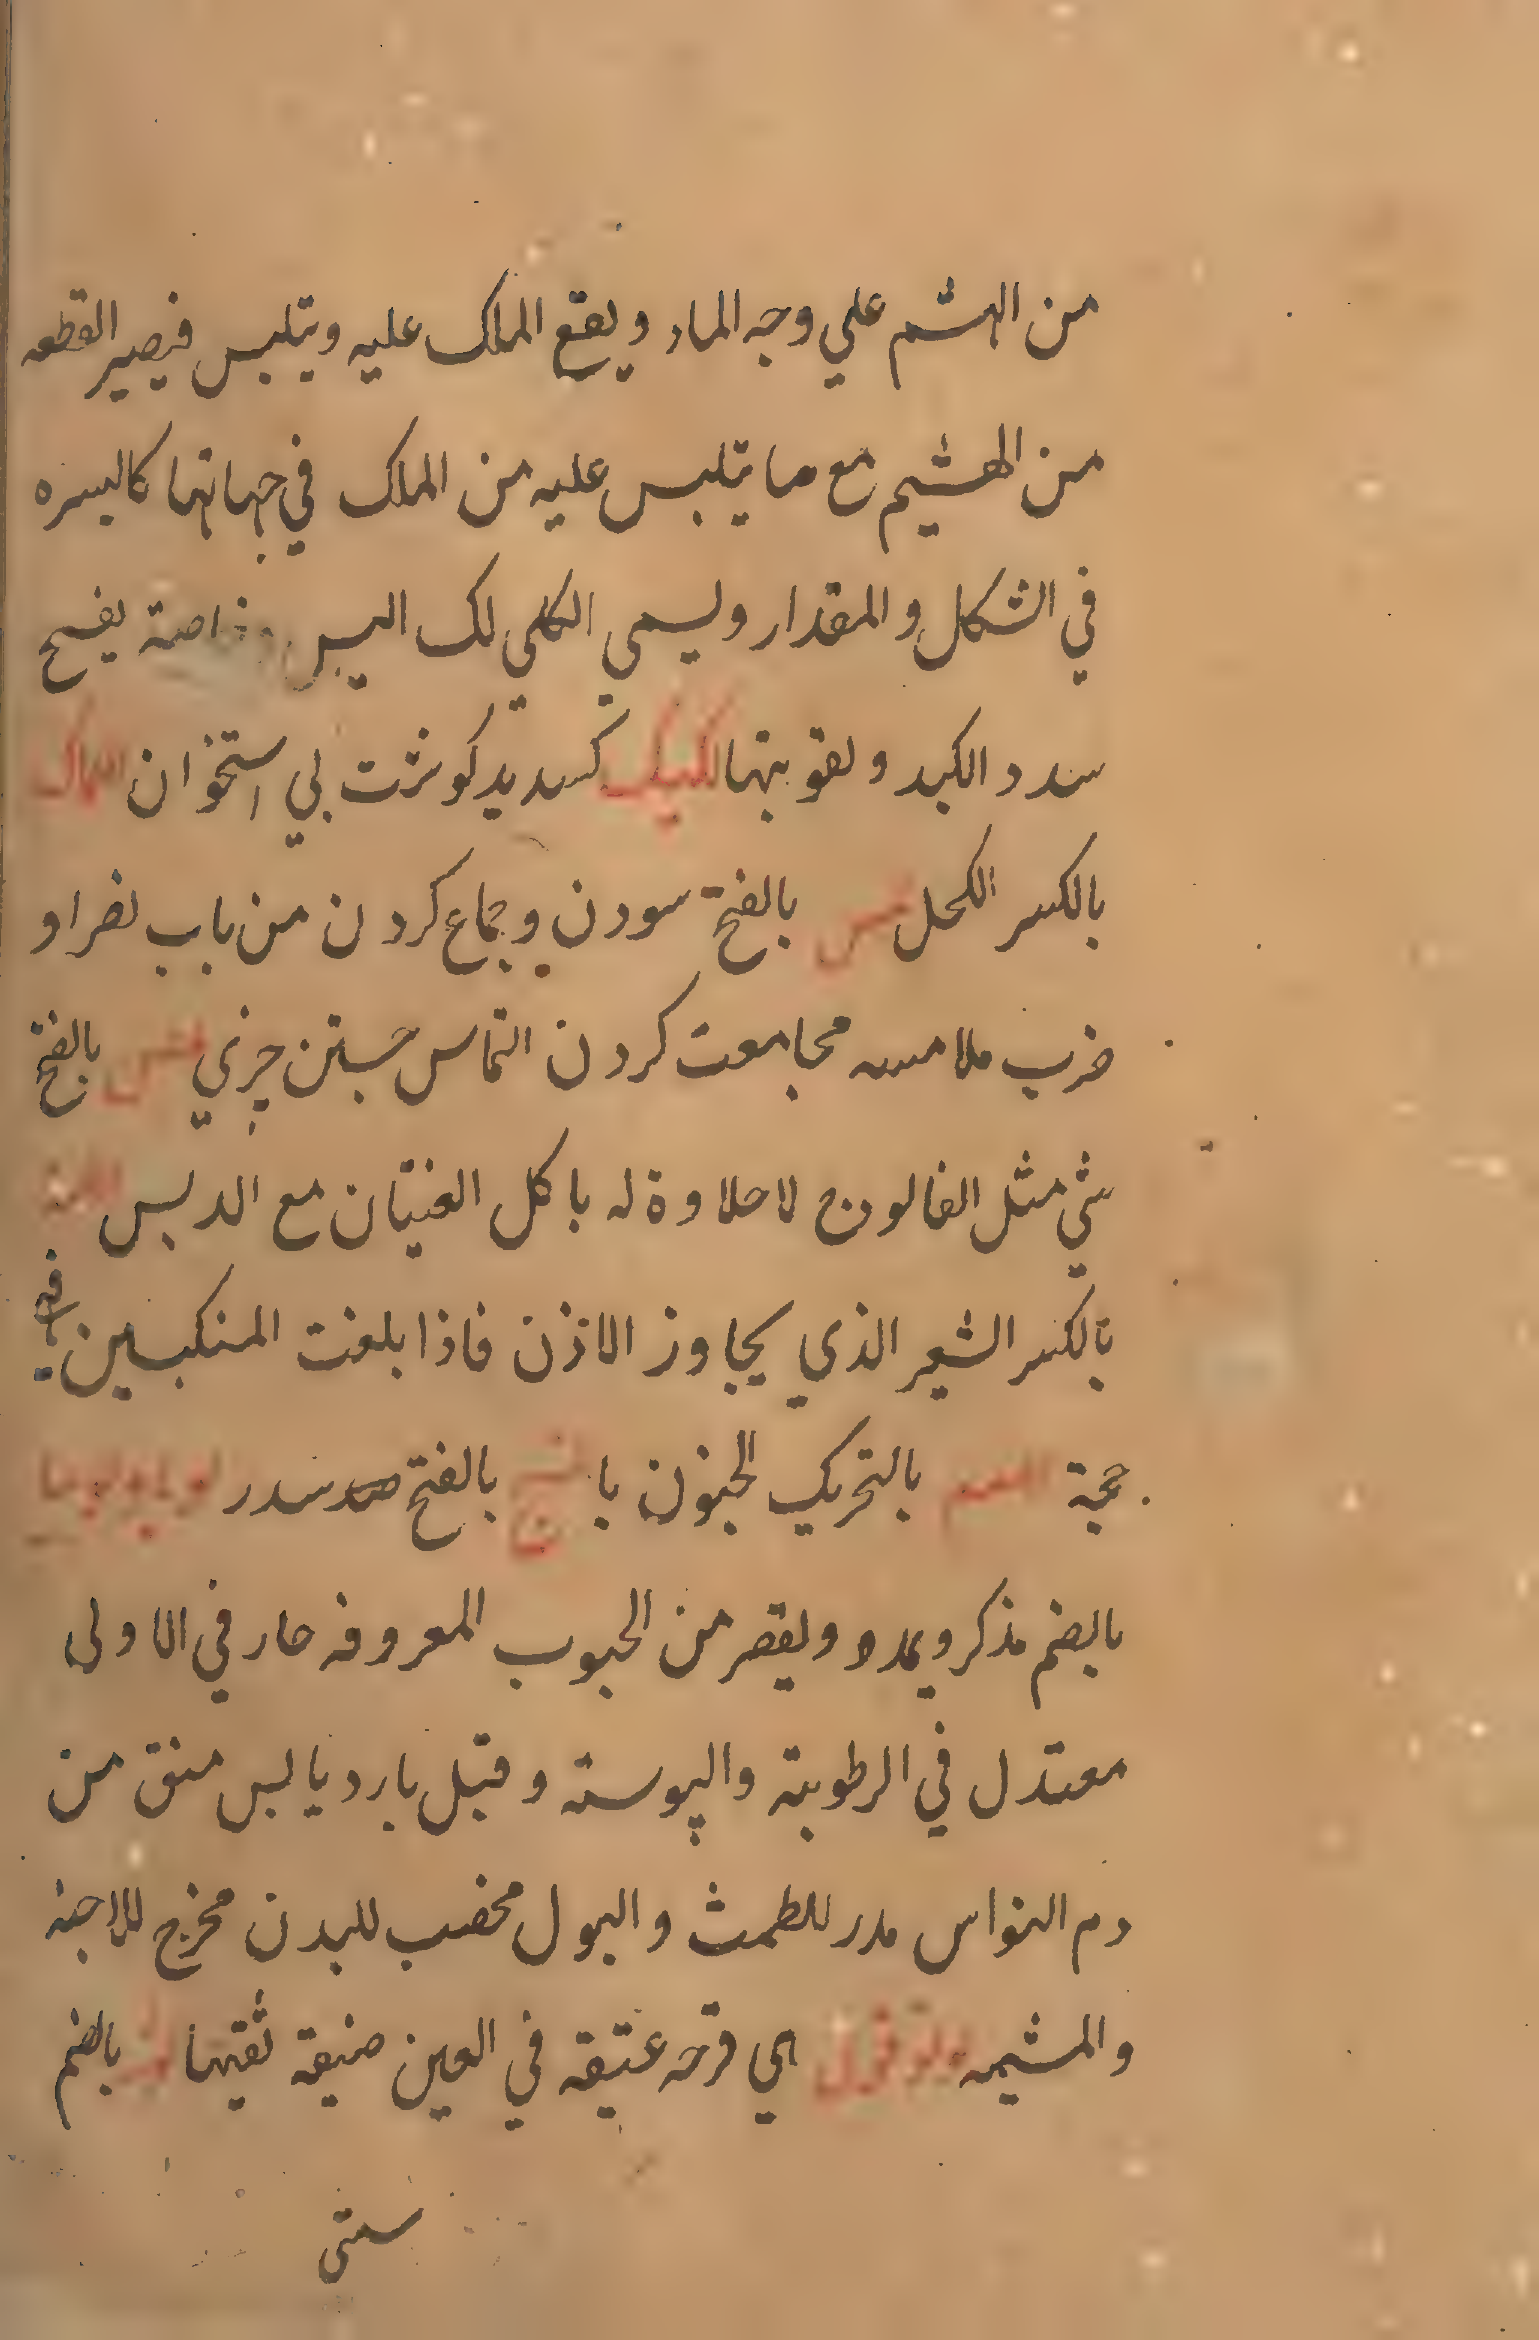 من الهشم علي وجه الماء ويقع الملک عليه ويتلبس فيصير القطعه
من الهشيم مع ما يتلبس عليه من الملک في جهاتها كاليسره
في الشكل والمقدار ويسمي الكلي لک اليس وخاصة يفتح
سدد الكبد ولقويتها لكيک كسديد كوشت بي استخوان اللماک
بالكسر الكحل لمس بالفتح سودن وجماع كردن من باب نصر او
ضرب ملامسه مجامعت كردن التماس جستن چيزي لمص بالفتح
شي مثل الفالوج لا حلاوة له ياكل الفتيان مع الدبس اللمة
بالكسر الشعير الذي يجاوز الاذن فاذا بلغت المنكبين فهي
جمة اللمم بالتحريک الجنون با بالفتح سدر لوبيا
بالضم مذكر ويمدد ويقصر من الحبوب المعروفه حار في الاولى
معتدل في الرطوبة واليبوسته وقيل بارد يابس منق من
دم النواس مدر للطمث والبول مخصب للبدن مخرج للاجنه
والمشيمه لوقوما اي قرحه عتيقه في العين ضيقة نقيها لوز بالضم
سمتى